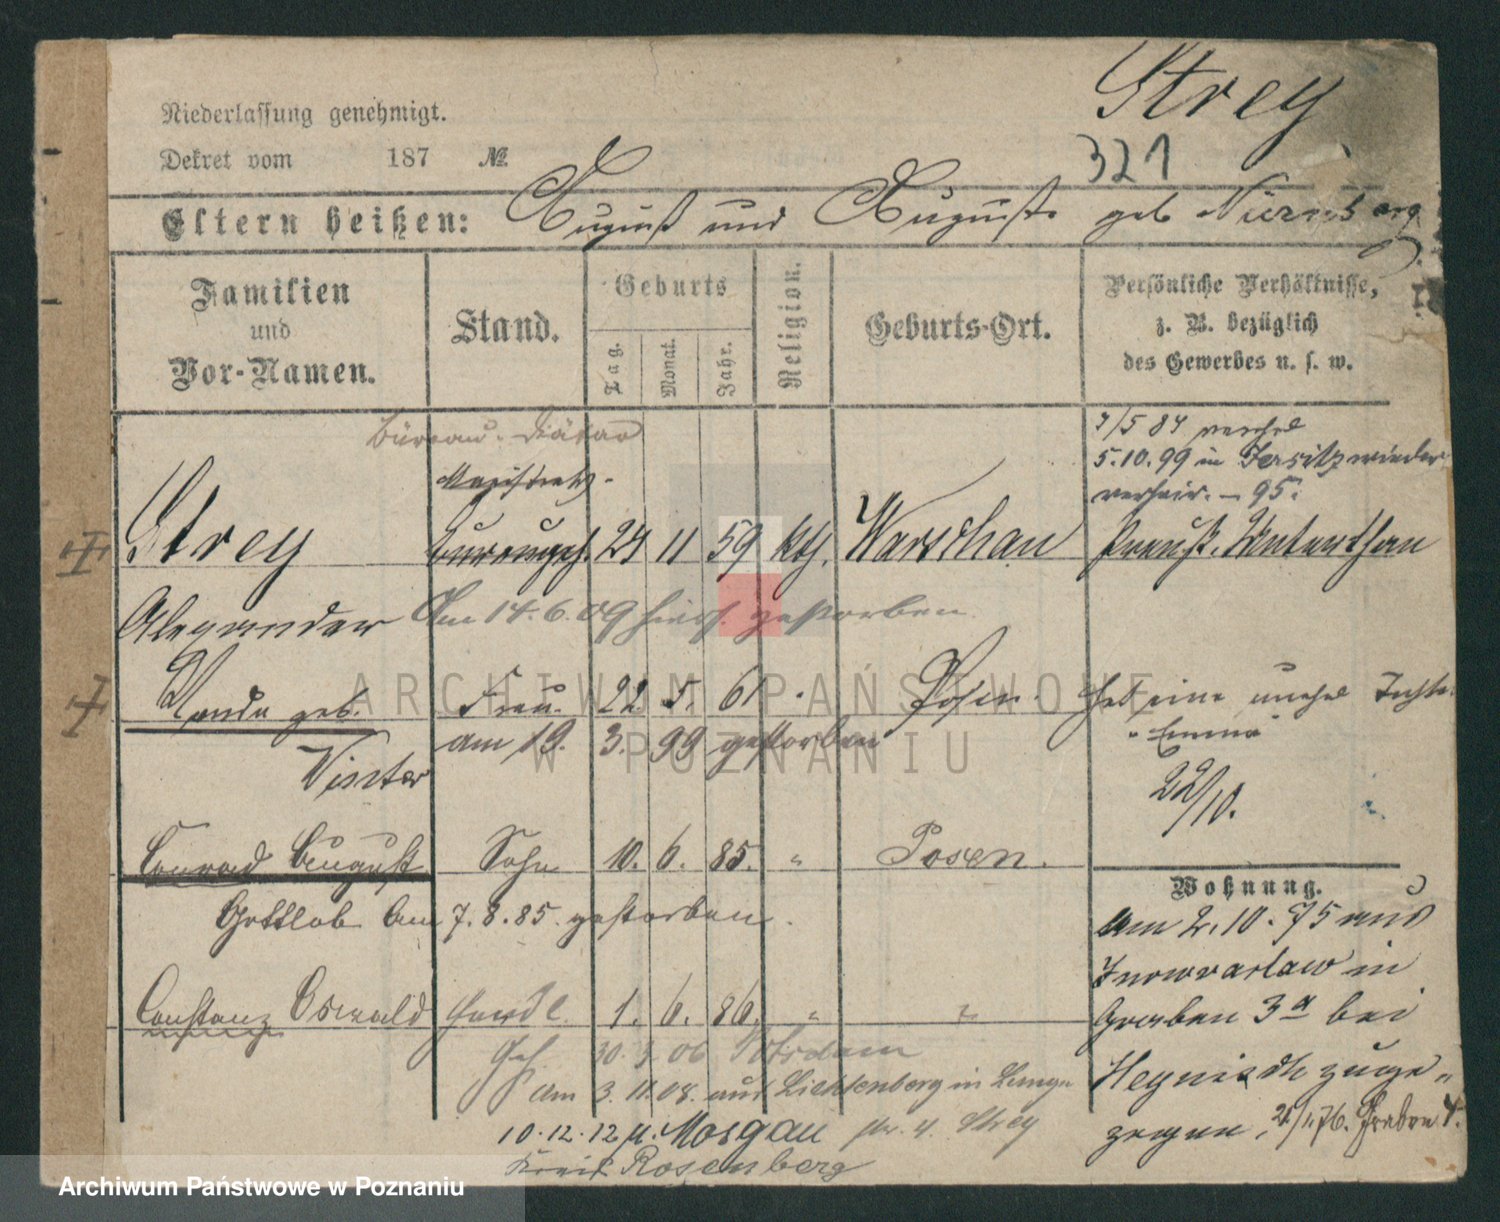 Strey
321
Niederlassung genehmigt.
Dekret vom 187 №
Eltern heißen: August und Auguste geb Nürnberg
Familien und Vor-Namen.
Stand.
Geburts
Tag. Monat. Jahr.
Religion.
Geburts-Ort.
Persönliche Verhältnisse,
z. B. bezüglich
des Gewerbes u. s. w.
Büreau-Diätar
7/5 84 verehel
5.10.99 in Jersitz wieder
verheir. - 95.
Magistrats-
Strey 24 11 59 kth. Warschau Preuß. Unterthan
Alexander Am 14.6.09 hier gestorben
Wanda geb. Frau. 22. 5. 61 Posen. Hat eine unehel Tochter
"Emma"
am 19. 3. 99 gestorben
22/10.
Conrad August Sohn 10. 6. 85. " Posen.
Gottlob Am 7.8.85. gestorben.
Wohnung.
Am 2.10.75 aus
Inowraclaw in
Graben 3a bei
zuge-
zogen, 76. Graben 4.
Constanz Oswald 1. 6. 86. "
30. 06 Potsdam
am 3.11.08. aus Lichtenberg in Lange
str. 4. Strey
10.12.12 n. Mosgau
Kreis Rosenberg
ARCHIWUM PAŃSTWOWE
W POZNANIU
Archiwum Państwowe w Poznaniu